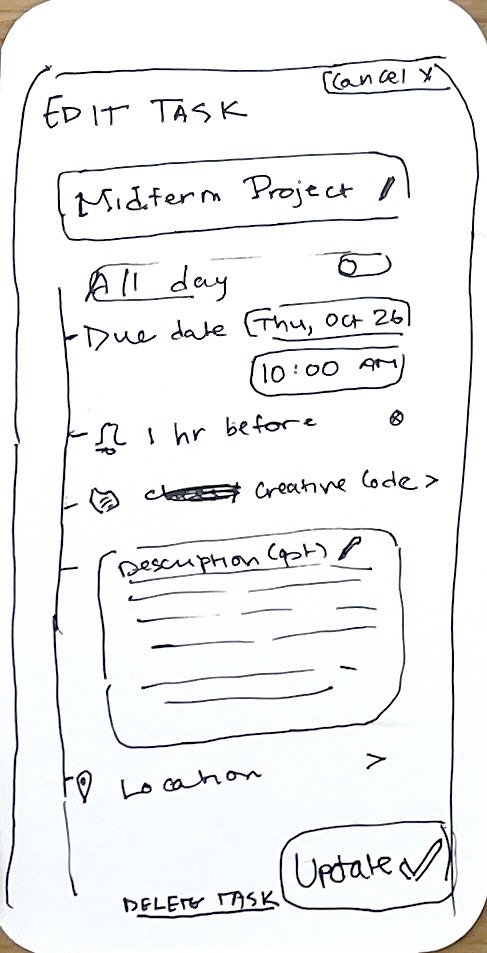 Cancel X
EDIT TASK
Midterm Project
All day
Due date Thu, Oct 26
10:00 AM
1 hr before
Creative Code >
Description (opt)
Location >
Update
DELETE TASK